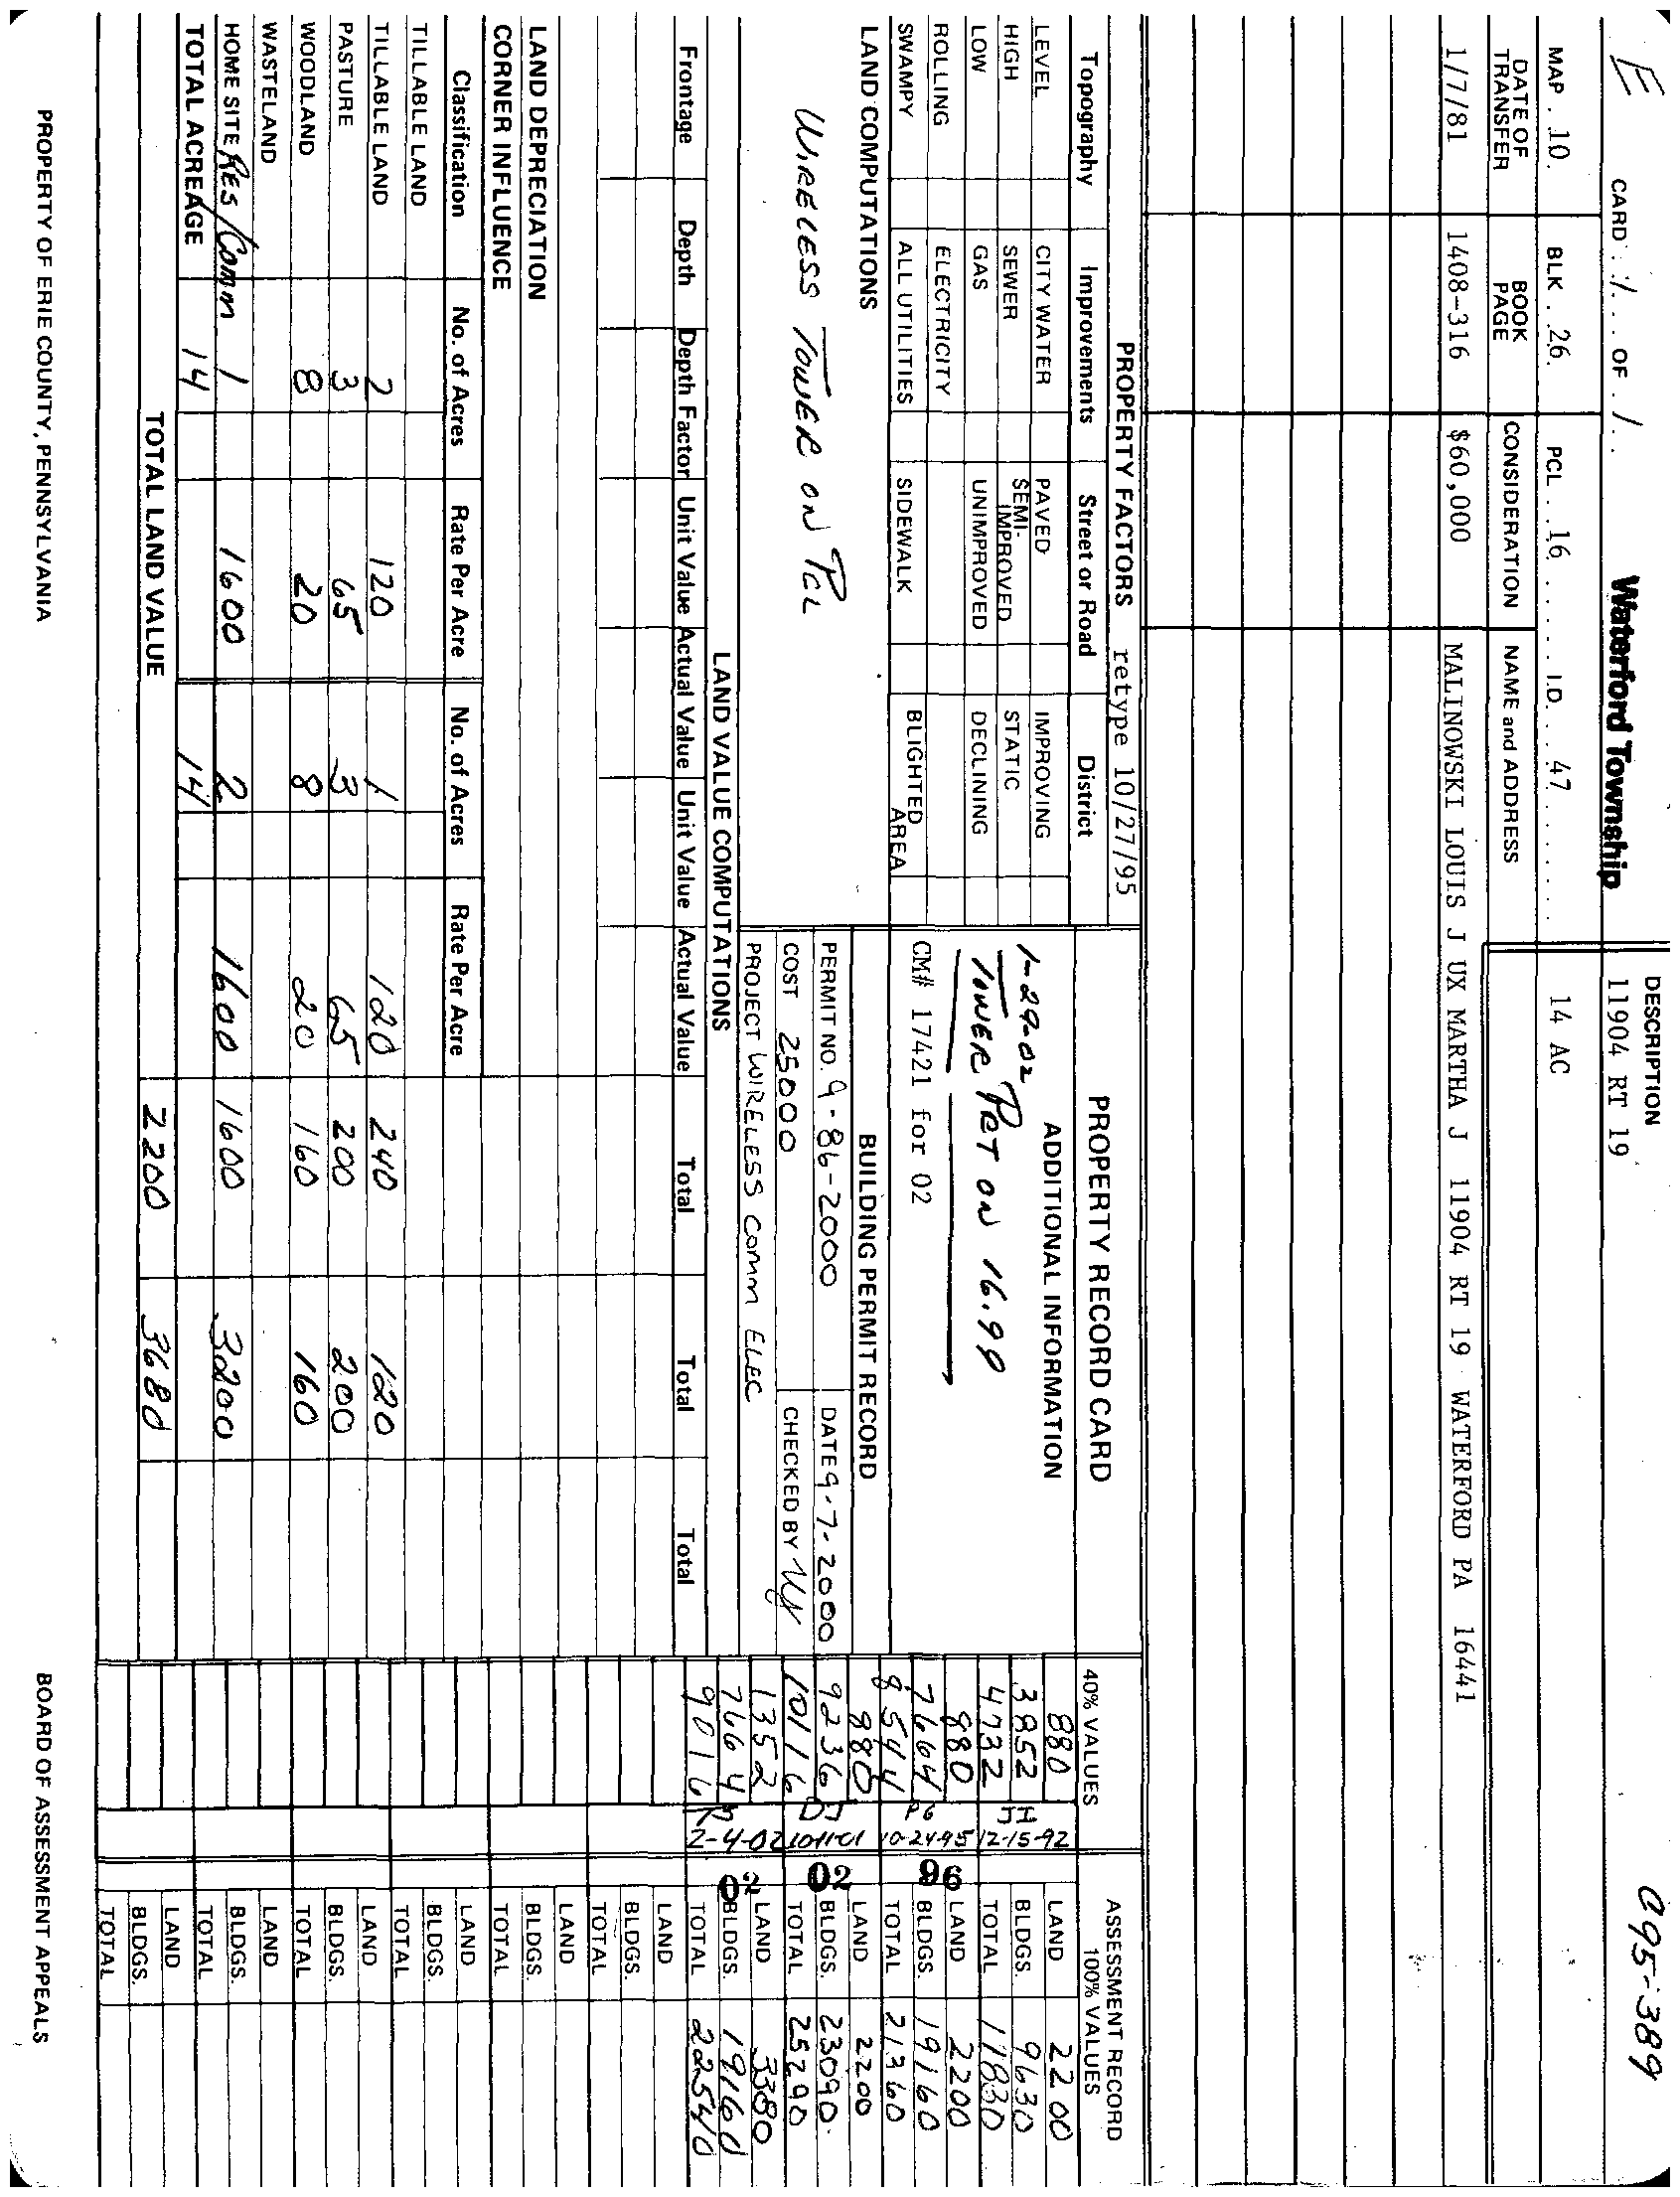 E CARD . 1 . . . OF . 1 . . Waterford Township
DESCRIPTION 995-389
11904 RT 19
MAP . 10. BLK . . 26. PCL . . 16 . . . . . . I.D. . . 47 . . . . . . . .
14 AC
DATE OF TRANSFER BOOK PAGE CONSIDERATION NAME and ADDRESS
1/7/81 1408-316 $60,000 MALINOWSKI LOUIS J UX MARTHA J 11904 RT 19 WATERFORD PA 16441
PROPERTY FACTORS retype 10/27/95
Topography Improvements Street or Road District
LEVEL CITY WATER PAVED IMPROVING
HIGH SEWER SEMI-IMPROVED STATIC
LOW GAS UNIMPROVED DECLINING
ROLLING ELECTRICITY
SWAMPY ALL UTILITIES SIDEWALK BLIGHTED AREA
LAND COMPUTATIONS
WIRELESS TOWER ON PCL
PROPERTY RECORD CARD
ADDITIONAL INFORMATION
1-29-02
TOWER PRT ON 16.99
CM# 17421 for 02
BUILDING PERMIT RECORD
PERMIT NO. 9-86-2000 DATE 9-7-2000
COST 25000 CHECKED BY
PROJECT WIRELESS COMM ELEC
LAND VALUE COMPUTATIONS
Frontage Depth Depth Factor Unit Value Actual Value Unit Value Actual Value Total Total Total
LAND DEPRECIATION
CORNER INFLUENCE
Classification No. of Acres Rate Per Acre No. of Acres Rate Per Acre
TILLABLE LAND
TILLABLE LAND 2 120 1 120 240 120
PASTURE 3 65 3 65 200 200
WOODLAND 8 20 8 20 160 160
WASTELAND
HOME SITE RES/COMM 1 1600 2 1600 1600 3200
TOTAL ACREAGE 14 14
TOTAL LAND VALUE 2200 3680
40% VALUES ASSESSMENT RECORD 100% VALUES
880 LAND 2200
3852 JI BLDGS. 9630
4732 12-15-92 TOTAL 11830
880 LAND 2200
7664 PG 96 BLDGS. 19160
8544 10-24-95 TOTAL 21360
880 LAND 2200
9236 DJ 02 BLDGS. 23090
10116 10-11-01 TOTAL 25290
1352 LAND 3380
7664 02 BLDGS. 19160
9016 2-4-02 TOTAL 22540
LAND
BLDGS.
TOTAL
LAND
BLDGS.
TOTAL
LAND
BLDGS.
TOTAL
LAND
BLDGS.
TOTAL
LAND
BLDGS.
TOTAL
LAND
BLDGS.
TOTAL
PROPERTY OF ERIE COUNTY, PENNSYLVANIA BOARD OF ASSESSMENT APPEALS